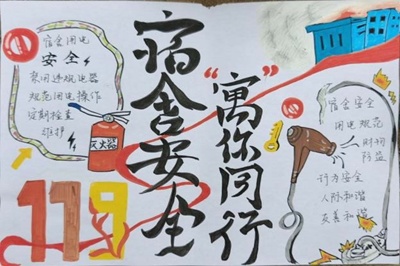 宿舍安全
“寓你同行
宿舍用电
安全
禁用违规电器
规范用电操作
定期检查
维护
灭火器
119
宿舍安全
用电规范
财物
防盗
行为安全
人际和谐
友善和谐